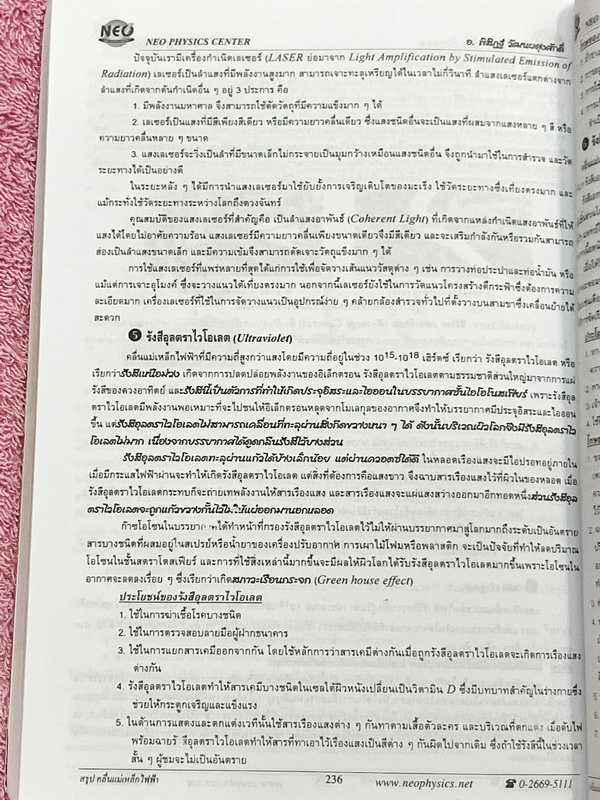 NEO
NEO PHYSICS CENTER
อ. พิสิฏฐ์ วัฒนผดุงศักดิ์
ปัจจุบันเรามีเครื่องกำเนิดเลเซอร์ (LASER ย่อมาจาก Light Amplification by Stimulated Emission of
Radiation) เลเซอร์เป็นลำแสงที่มีพลังงานสูงมาก สามารถเจาะทะลุเหรียญได้ในเวลาไม่กี่วินาที ลำแสงเลเซอร์แตกต่างจาก
ลำแสงที่เกิดจากต้นกำเนิดอื่น ๆ อยู่ 3 ประการ คือ
1. มีพลังงานมหาศาล จึงสามารถใช้ตัดวัตถุที่มีความแข็งมาก ๆ ได้
2. เลเซอร์เป็นแสงที่มีสีเพียงสีเดียว หรือมีความยาวคลื่นเดียว ซึ่งแสงชนิดอื่นจะเป็นแสงที่ผสมจากแสงหลาย ๆ สี หรือ
ความยาวคลื่นหลาย ๆ ขนาด
3. แสงเลเซอร์จะวิ่งเป็นลำที่มีขนาดเล็กไม่กระจายเป็นมุมกว้างเหมือนแสงชนิดอื่น จึงถูกนำมาใช้ในการสำรวจ และวัด
ระยะทางได้เป็นอย่างดี
ในระยะหลัง ๆ ได้มีการนำแสงเลเซอร์มาใช้ยับยั้งการเจริญเติบโตของมะเร็ง ใช้วัดระยะทางซึ่งเที่ยงตรงมาก และ
แม้กระทั่งใช้วัดระยะทางระหว่างโลกถึงดวงจันทร์
คุณสมบัติของแสงเลเซอร์ที่สำคัญคือ เป็นลำแสงอาพันธ์ (Coherent Light) ที่เกิดจากแหล่งกำเนิดแสงอาพันธ์ที่ให้
แสงได้โดยไม่อาศัยความร้อน แสงเลเซอร์มีความยาวคลื่นเพียงขนาดเดียวจึงมีสีเดียว และจะเสริมกำลังกันหรือรวมกันสามารถ
ส่องเป็นลำแสงขนาดเล็ก และมีความเข้มจึงสามารถตัดเจาะวัตถุแข็งมาก ๆ ได้
การใช้แสงเลเซอร์ที่แพร่หลายที่สุดได้แก่การใช้เพื่อจัดวางเส้นแนววัสดุต่าง ๆ เช่น การวางท่อประปาและท่อน้ำมัน หรือ
แม้แต่การเจาะอุโมงค์ ซึ่งจะวางแนวได้เที่ยงตรงมาก นอกจากนี้เลเซอร์ยังใช้ในการวัดแนวโครงสร้างตึกระฟ้าซึ่งต้องการความ
ละเอียดมาก เครื่องเลเซอร์ที่ใช้ในการจัดวางแนวเป็นอุปกรณ์ง่าย ๆ คล้ายกล้องสำรวจทั่วไปที่ตั้งวางบนสามขาซึ่งเคลื่อนย้ายได้
สะดวก
5 รังสีอุลตราไวโอเลต (Ultraviolet)
คลื่นแม่เหล็กไฟฟ้าที่มีความถี่สูงกว่าแสงโดยมีความถี่อยู่ในช่วง 10¹⁵-10¹⁸ เฮิรตซ์ เรียกว่า รังสีอุลตราไวโอเลต หรือ
เรียกว่ารังสีเหนือม่วง เกิดจากการปลดปล่อยพลังงานของอิเล็กตรอน รังสีอุลตราไวโอเลตตามธรรมชาติส่วนใหญ่มาจากการแผ่
รังสีของดวงอาทิตย์ และรังสีนี้เป็นตัวการที่ทำให้เกิดประจุอิสระและไอออนในบรรยากาศชั้นไอโอโนสเฟียร์ เพราะรังสีอุล
ตราไวโอเลตมีพลังงานพอเหมาะที่จะไปชนให้อิเล็กตรอนหลุดจากโมเลกุลของอากาศจึงทำให้บรรยากาศมีประจุอิสระและไอออน
ขึ้น แต่รังสีอุลตราไวโอเลตไม่สามารถเคลื่อนที่ทะลุผ่านสิ่งกีดขวางหนา ๆ ได้ ดังนั้นบริเวณผิวโลกจึงมีรังสีอุลตราไว
โอเลตไม่มาก เนื่องจากบรรยากาศได้ดูดกลืนรังสีไว้บางส่วน
รังสีอุลตราไวโอเลตทะลุผ่านแก้วได้บ้างเล็กน้อย แต่ผ่านควอตซ์ได้ดี ในหลอดเรืองแสงจะมีไอปรอทอยู่ภายใน
เมื่อมีกระแสไฟฟ้าผ่านจะทำให้เกิดรังสีอุลตราไวโอเลต แต่สิ่งที่ต้องการคือแสงขาว จึงฉาบสารเรืองแสงไว้ที่ผิวในของหลอด เมื่อ
รังสีอุลตราไวโอเลตกระทบก็จะถ่ายเทพลังงานให้สารเรืองแสง และสารเรืองแสงจะแผ่แสงสว่างออกมาอีกทอดหนึ่งส่วนรังสีอุล
ตราไวโอเลตจะถูกแก้วขวางกั้นไว้ไม่ให้แผ่ออกมานอกหลอด
ก๊าซโอโซนในบรรยากาศได้ทำหน้าที่กรองรังสีอุลตราไวโอเลตไว้ไม่ให้ผ่านบรรยากาศมาสู่โลกมากถึงระดับเป็นอันตราย
สารบางชนิดที่ผสมอยู่ในสเปรย์หรือน้ำยาของเครื่องปรับอากาศ การเผาไม้โฟมหรือพลาสติก จะเป็นปัจจัยที่ทำให้ลดปริมาณ
โอโซนในชั้นสตราโตสเฟียร์ และการที่ใช้สิ่งเหล่านี้มากขึ้นจะมีผลให้ผิวโลกได้รับรังสีอุลตราไวโอเลตมากขึ้นเพราะโอโซนใน
อากาศจะลดลงเรื่อย ๆ ซึ่งเรียกว่าเกิดสภาวะเรือนกระจก (Green house effect)
ประโยชน์ของรังสีอุลตราไวโอเลต
1. ใช้ในการฆ่าเชื้อโรคบางชนิด
2. ใช้ในการตรวจสอบลายมือผู้ฝากธนาคาร
3. ใช้ในการแยกสารเคมีออกจากกัน โดยใช้หลักการว่าสารเคมีต่างกันเมื่อถูกรังสีอุลตราไวโอเลตจะเกิดการเรืองแสง
ต่างกัน
4. รังสีอุลตราไวโอเลตทำให้สารเคมีบางชนิดในเซลใต้ผิวหนังเปลี่ยนเป็นวิตามิน D ซึ่งมีบทบาทสำคัญในร่างกายซึ่ง
ช่วยให้กระดูกเจริญและแข็งแรง
5. ในด้านการแสดงและตกแต่งเวทีนั้นใช้สารเรืองแสงต่าง ๆ กันทาตามเสื้อตัวละคร และบริเวณที่ตกแต่ง เมื่อดับไฟ
พร้อมฉายรังสีอุลตราไวโอเลตทำให้สารที่ทาเอาไว้เรืองแสงเป็นสีต่าง ๆ กันผิดไปจากเดิม ซึ่งถ้าใช้รังสีนี้ในช่วงเวลา
สั้น ๆ ผู้ชมจะไม่เป็นอันตราย
สรุป คลื่นแม่เหล็กไฟฟ้า
236
www.neophysics.net
☎ 0-2669-5111